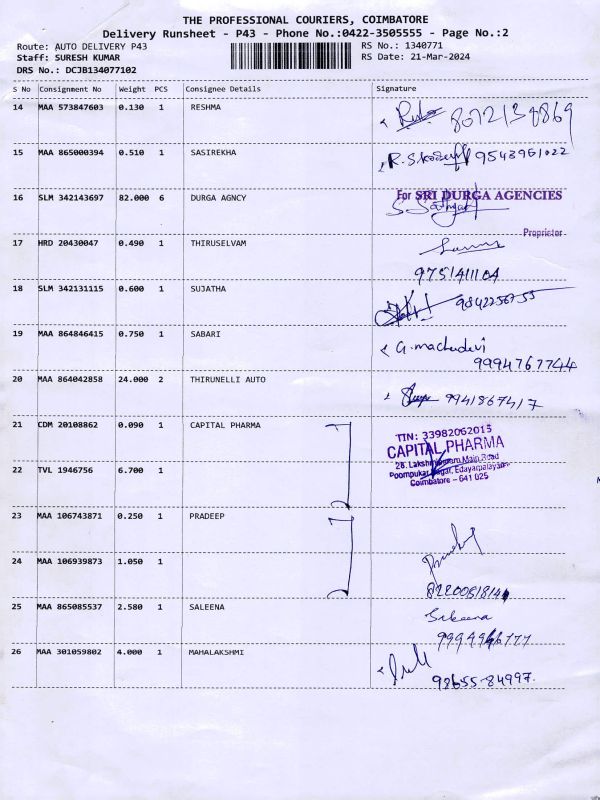 THE PROFESSIONAL COURIERS, COIMBATORE
Delivery Runsheet - P43 - Phone No.:0422-3505555 - Page No.:2
Route: AUTO DELIVERY P43 RS No.: 1340771
Staff: SURESH KUMAR RS Date: 21-Mar-2024
DRS No.: DCJB134077102
S No Consignment No Weight PCS Consignee Details Signature
14 MAA 573847603 0.130 1 RESHMA
15 MAA 865000394 0.510 1 SASIREKHA 9543961022
16 SLM 342143697 82.000 6 DURGA AGNCY For SRI DURGA AGENCIES
Proprietor
17 HRD 20430047 0.490 1 THIRUSELVAM
18 SLM 342131115 0.600 1 SUJATHA 9842256755
19 MAA 864846415 0.750 1 SABARI G. machudevi
9994767744
20 MAA 864042858 24.000 2 THIRUNELLI AUTO 9941867417
21 CDM 20108862 0.090 1 CAPITAL PHARMA TIN: 33982062015
CAPITAL PHARMA
Main Road
22 TVL 1946756 6.700 1 Poompukar Nagar, Edayarpalayam
Coimbatore - 641 025
23 MAA 106743871 0.250 1 PRADEEP
24 MAA 106939873 1.050 1
25 MAA 865085537 2.580 1 SALEENA Saleena
26 MAA 301059802 4.000 1 MAHALAKSHMI
98655-84997.